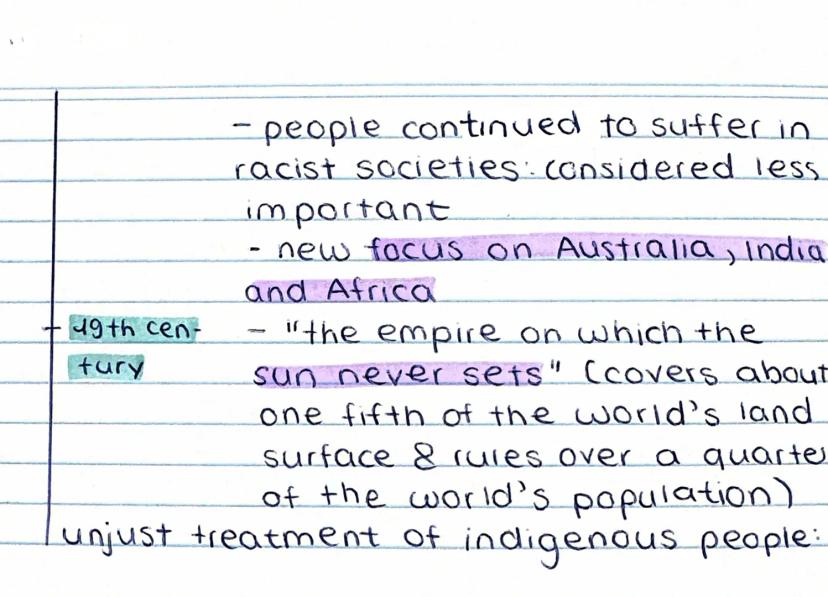 - people continued to suffer in
racist societies: considered less
important
- new focus on Australia, India
and Africa
19th cen-
tury
- "the empire on which the
sun never sets" (covers about
one fifth of the world's land
surface & rules over a quarter
of the world's population)
unjust treatment of indigenous people: